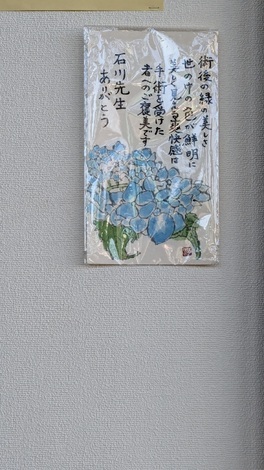 術後の緑の美しさ
世の中の色が鮮明に
見える爽快感は
手術を受けた
者へのご褒美です
石川先生
ありがとう